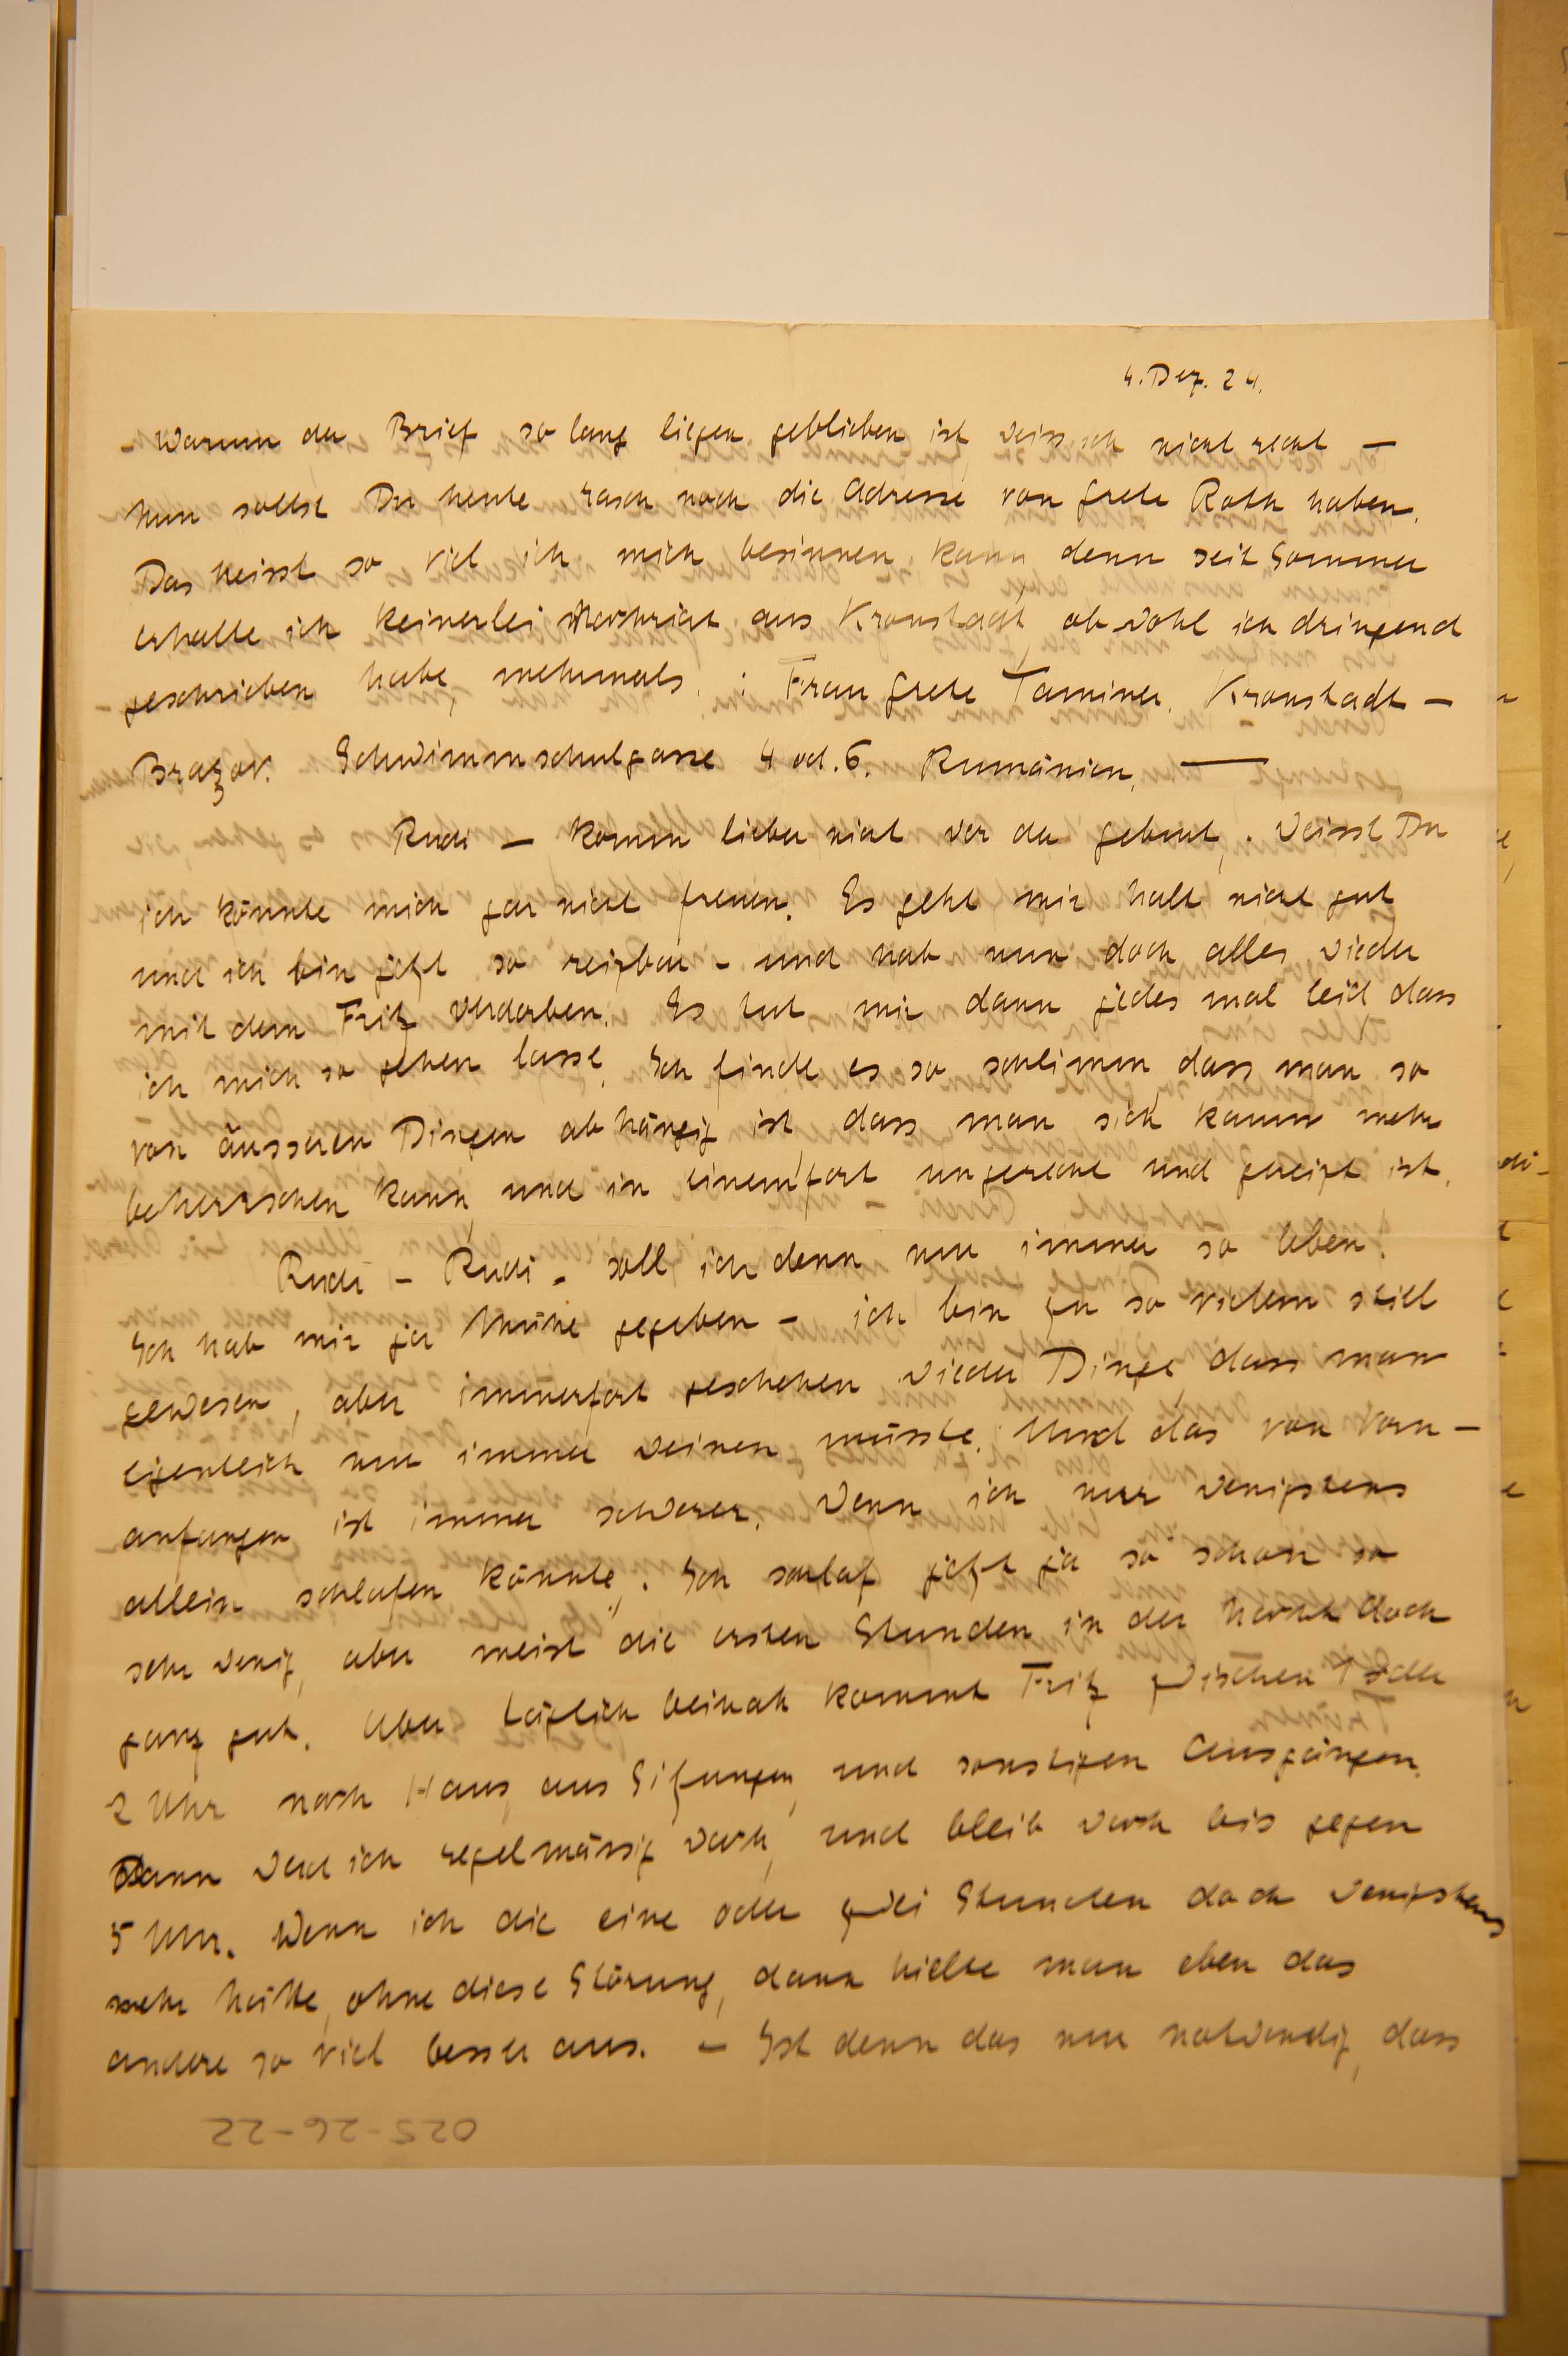 4. Dez. 24.
Warum der Brief so lang liegen geblieben ist weiss ich nicht recht —
Nun sollst Du heute rasch noch die Adresse von Grete Roth haben.
Das heisst so viel ich mich besinnen kann denn seit Sommer
erhalte ich keinerlei Nachricht aus Kronstadt, obwohl ich dringend
geschrieben habe mehrmals. : Frau Grete Kronstadt —
Schwimmschulgasse 4 od. 6. Rumänien. —
Rudi — komm lieber nicht vor der Geburt. Weisst Du
ich könnte mich gar nicht freuen. Es geht mir halt nicht gut
und ich bin jetzt so reizbar - und hab nun doch alles wieder
mit dem Fritz verdorben. Es tut mir dann jedes mal leid dass
ich mich so gehen lasse. Ich finde es so schlimm dass man so
von äusseren Dingen abhängig ist, dass man sich kaum mehr
beherrschen kann, und in einemfort ungerecht und gereizt ist.
Rudi - Rudi - soll ich denn nun immer so leben.
Ich hab mir ja Mühe gegeben — ich bin zu so vielem still
gewesen, aber immerfort geschehen wieder Dinge dass man
eigentlich nur immer weinen müsste. Und das von vorn-
anfangen ist immer schwerer. Wenn ich nur wenigstens
allein schlafen könnte. Ich schlaf jetzt ja so schon so
sehr wenig, aber meist die ersten Stunden in der Nacht doch
ganz gut. Aber täglich beinah kommt Fritz zwischen 1 oder
2 Uhr nach Haus, aus Sitzungen, und sonstigen Ausgängen.
Dann werd ich regelmässig wach, und bleib wach bis gegen
5 Uhr. Wenn ich die eine oder zwei Stunden doch wenigstens
mehr hätte, ohne diese Störung, dann hielte man eben das
andere so viel besser aus. — Ist denn das nun notwendig, dass
025-26-22